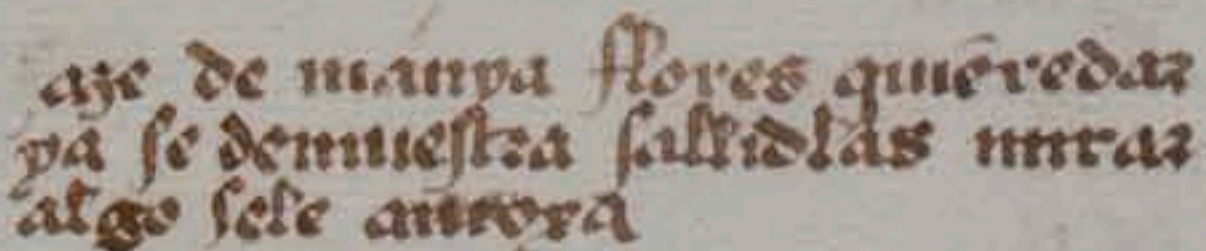 aje de manya flores quieredar
ya se demuestra sallidlas mirar
algo sele antoxa